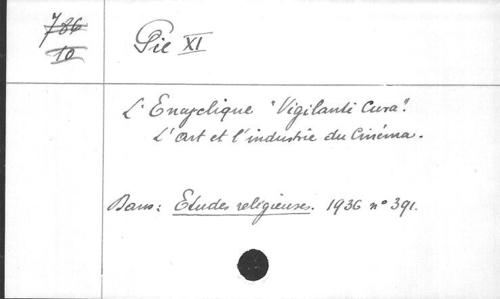 786
10
Pie XI
L'Encyclique "Vigilanti Cura".
L'art et l'industrie du Cinéma.
Dans: Etudes religieuses. 1936 n° 391.